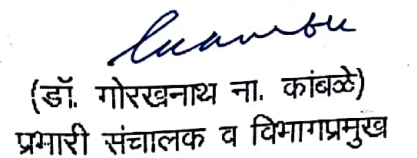 (डॉ. गोरखनाथ ना. कांबळे)
प्रभारी संचालक व विभागप्रमुख